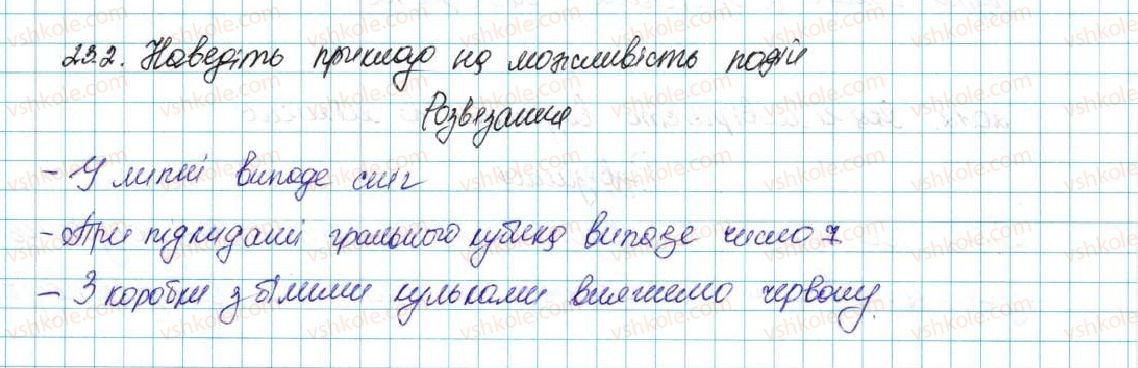 23.2. Наведіть приклад на можливість подій
Розвязання
- У липні випаде сніг
- При підкидані грального кубика випаде число 7
- З коробки з білими кульками витягнемо червону.